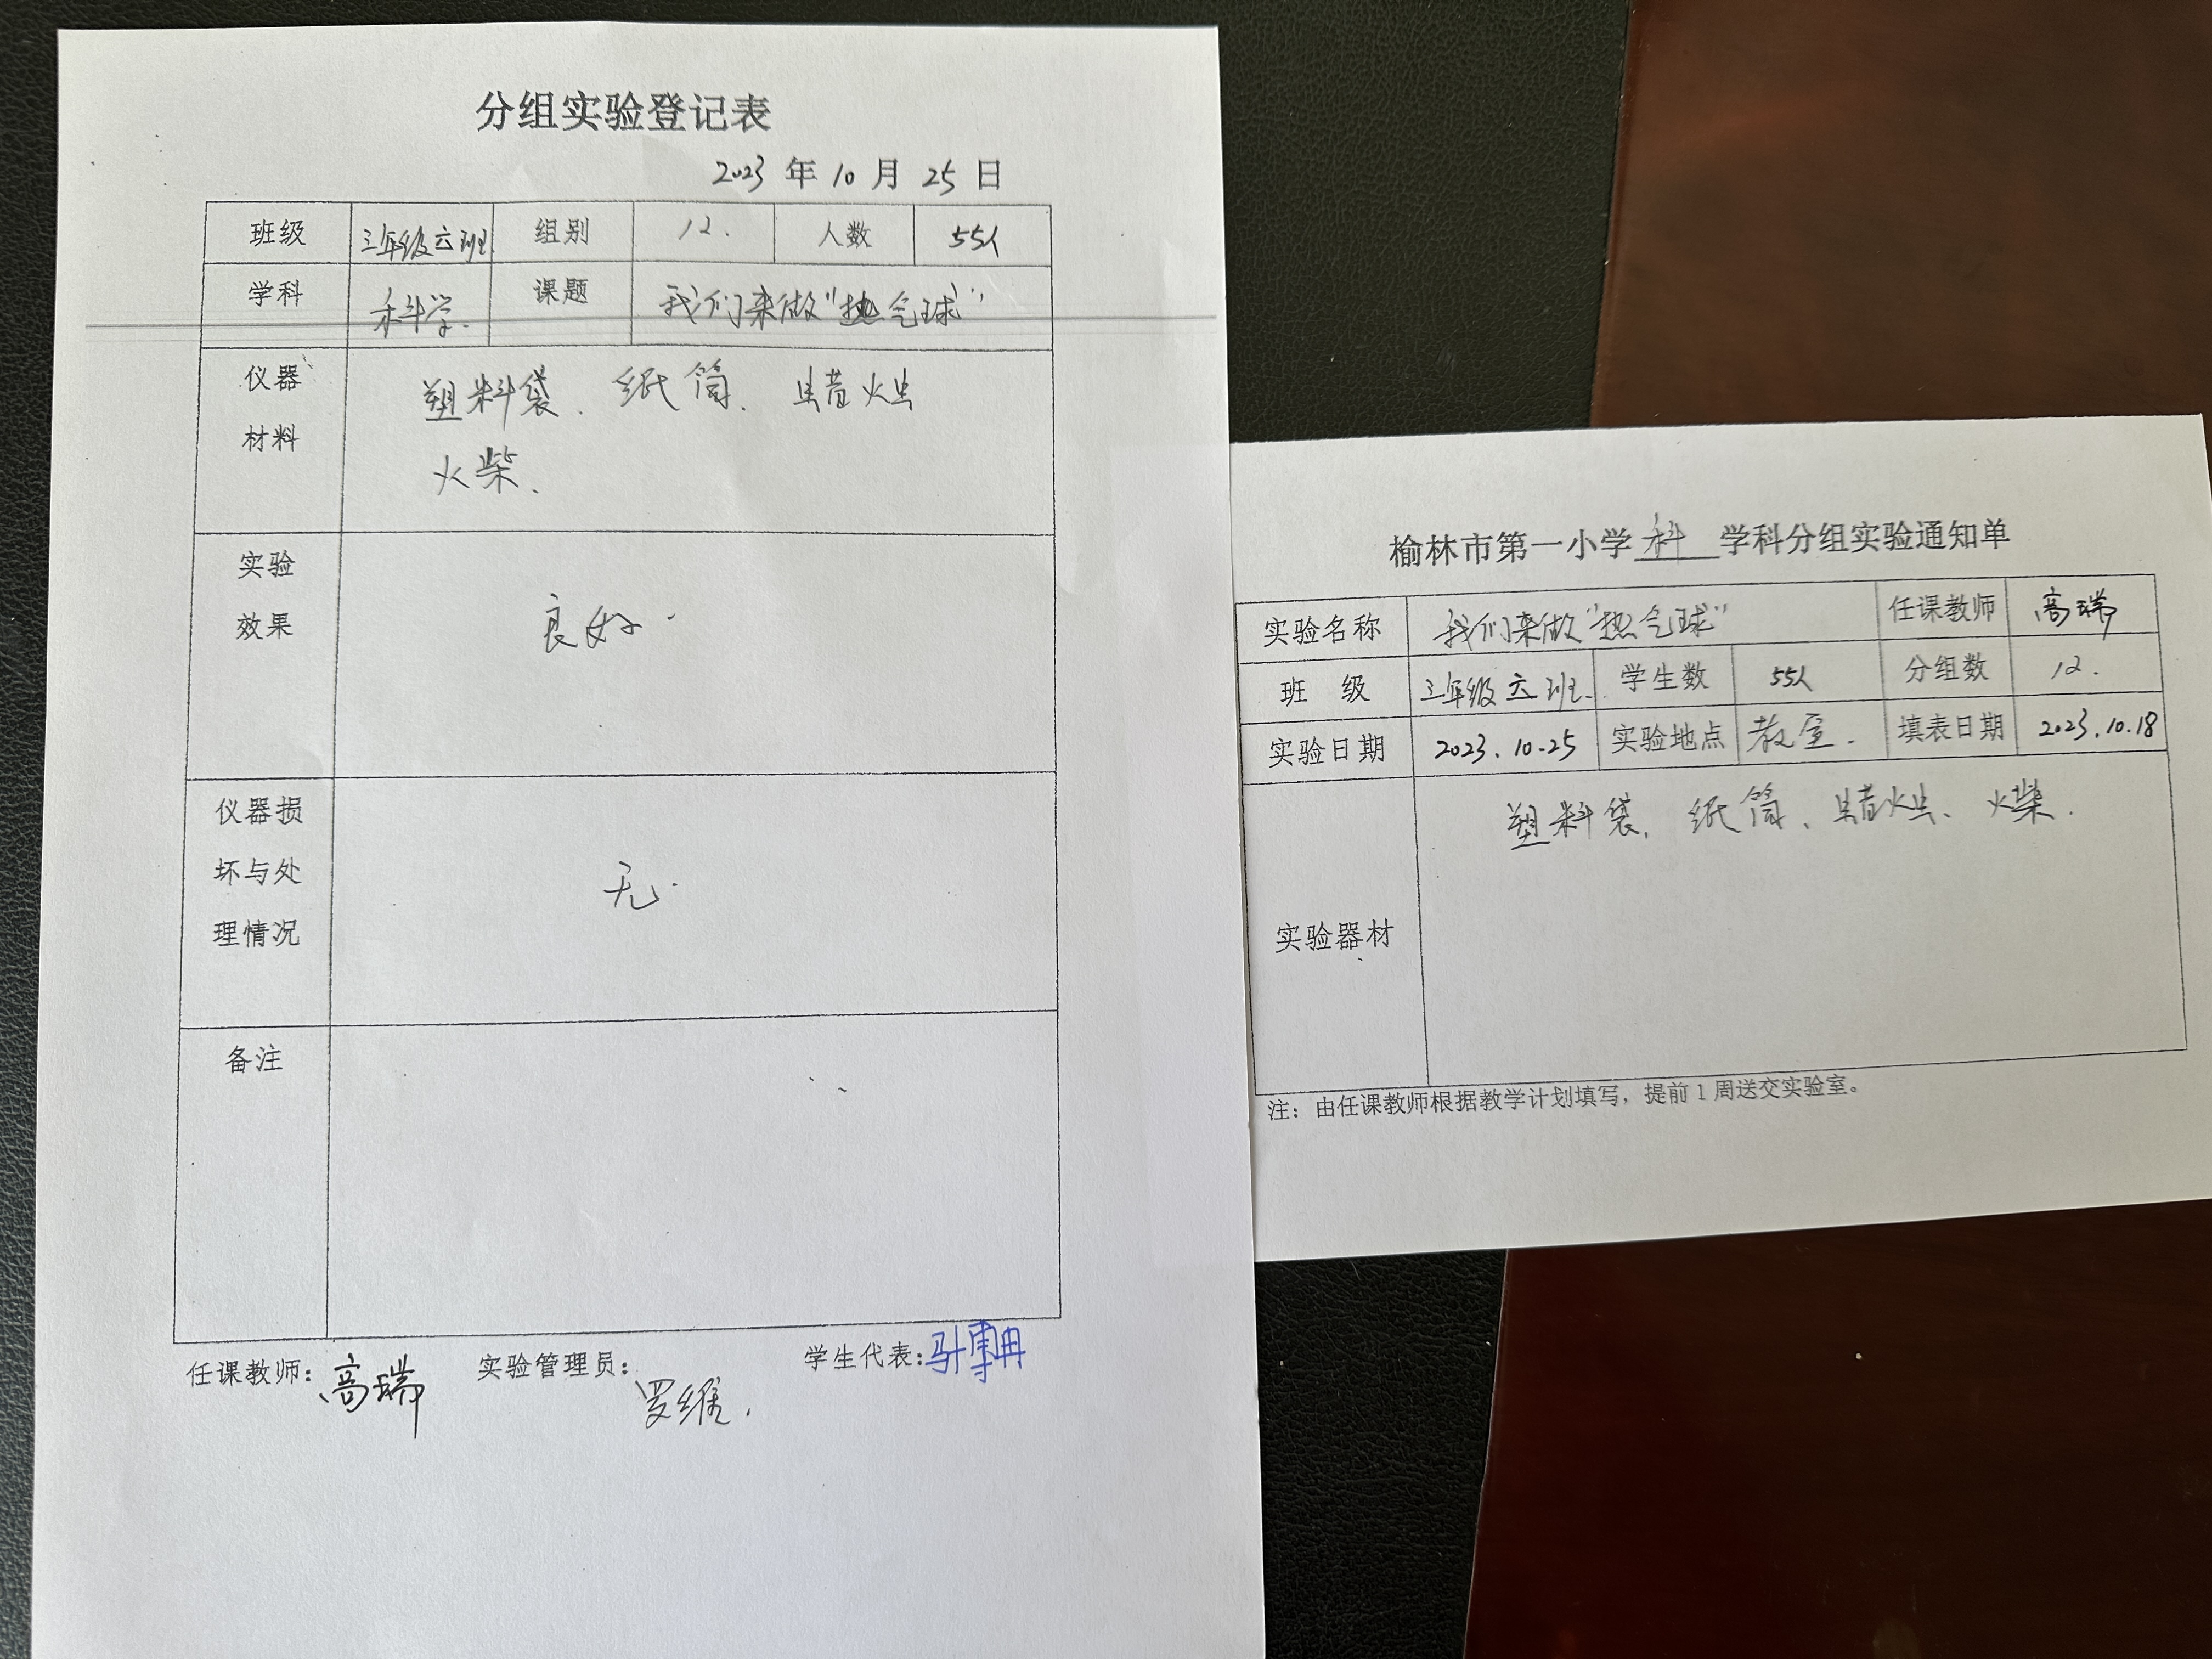 分组实验登记表
2023 年 10 月 25 日
班级 三年级六班 组别 12. 人数 55人
学科 科学. 课题 我们来做“热气球”
仪器 塑料袋、纸筒、蜡烛
材料 火柴、
实验
效果 良好.
仪器损
坏与处 无.
理情况
备注
任课教师：高瑞 实验管理员：罗维. 学生代表：
榆林市第一小学 科 学科分组实验通知单
实验名称 我们来做“热气球” 任课教师 高瑞
班 级 三年级六班. 学生数 55人 分组数 12.
实验日期 2023.10-25 实验地点 教室. 填表日期 2023.10.18
塑料袋、纸筒、蜡烛、火柴.
实验器材
注：由任课教师根据教学计划填写，提前 1 周送交实验室。